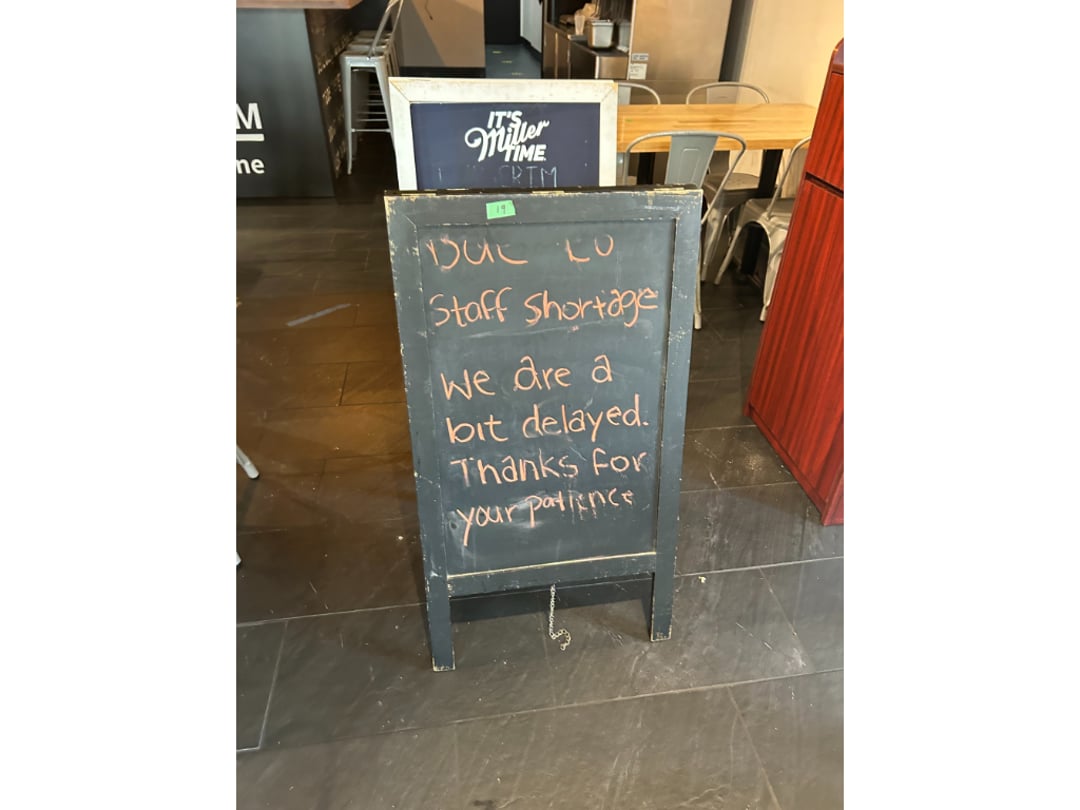 M
me
IT'S
Miller
TIME
19
Due to
Staff Shortage
we are a
bit delayed.
Thanks for
your patience